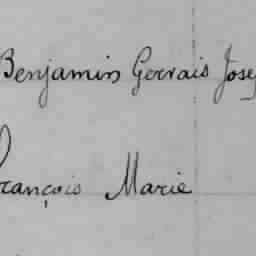 Benjamin Gervais Jose
François Marie